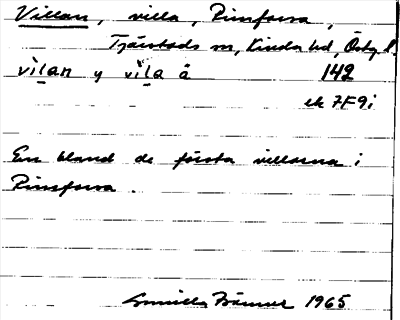 Villan, villa, Rimforsa,
Tjärstads sn, Kinda hd, Östg l.
vìlan y vìla å 142
ek 7F9i
En bland de första villorna i
Rimforsa.
Gunilla 1965